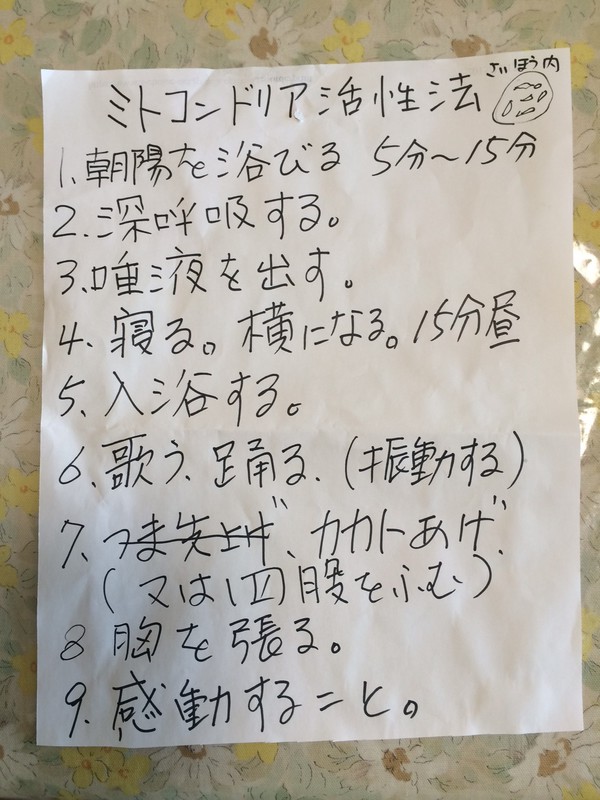 さいほう内
ミトコンドリア活性法
1.朝陽を浴びる 5分〜15分
2.深呼吸する。
3.唾液を出す。
4、寝る。横になる。15分昼
5、入浴する。
6、歌う、踊る、(振動する)
7、つま先上げ、カカトあげ、
(又は四股をふむ)
8 胸を張る。
9、感動すること。